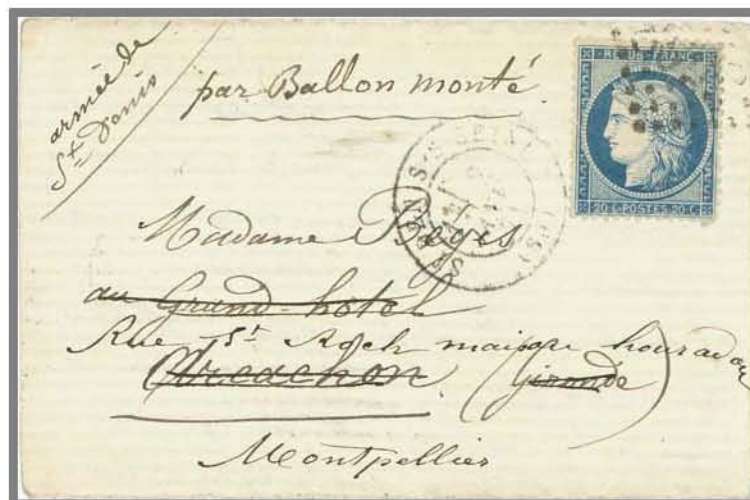 armée de
St Denis
par Ballon monté
REPUB. FRANC.
20 C. POSTES 20 C.
Madame Begis
au Grand hôtel
Rue St Roch maison houradou
Arcachon (Gironde)
Montpellier